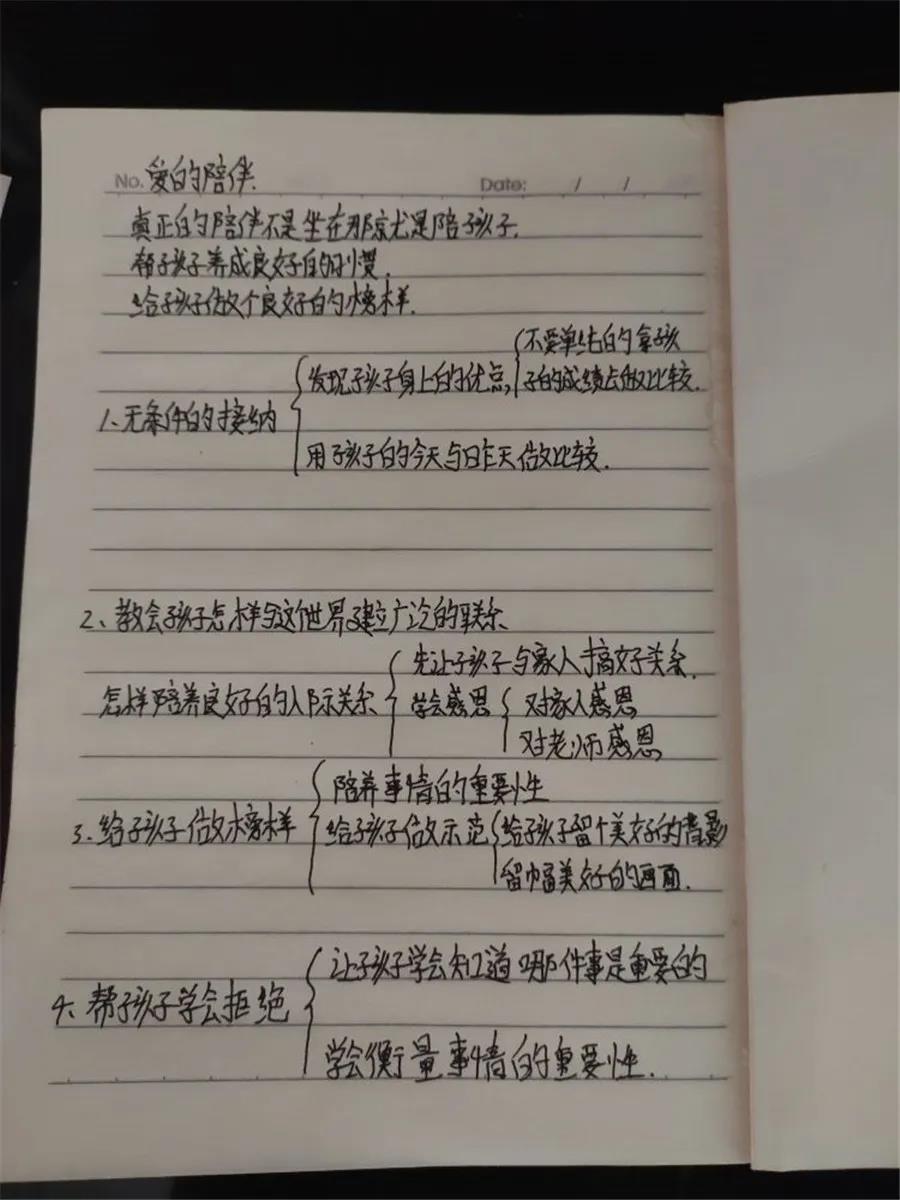 No. 爱的陪伴.
Date: / /
真正的陪伴不是坐在那京尤是陪孩子.
帮孩子养成良好的习惯.
给孩子做个良好的榜样.
不要单纯的拿孩
发现孩子身上的优点, 子的成绩去做比较.
1、无条件的接纳
用孩子的今天与昨天做比较.
2、教会孩子怎样与这世界建立广泛的联系
先让孩子与家人搞好关系.
怎样培养良好的人际关系 学会感恩 对家人感恩
对老师感恩
陪养事情的重要性
3、给孩子做榜样 给孩子做示范 给孩子留个美好的背影
留幅美好的画面.
让孩子学会知道哪件事是重要的
4、帮孩子学会拒绝
学会衡量事情的重要性.